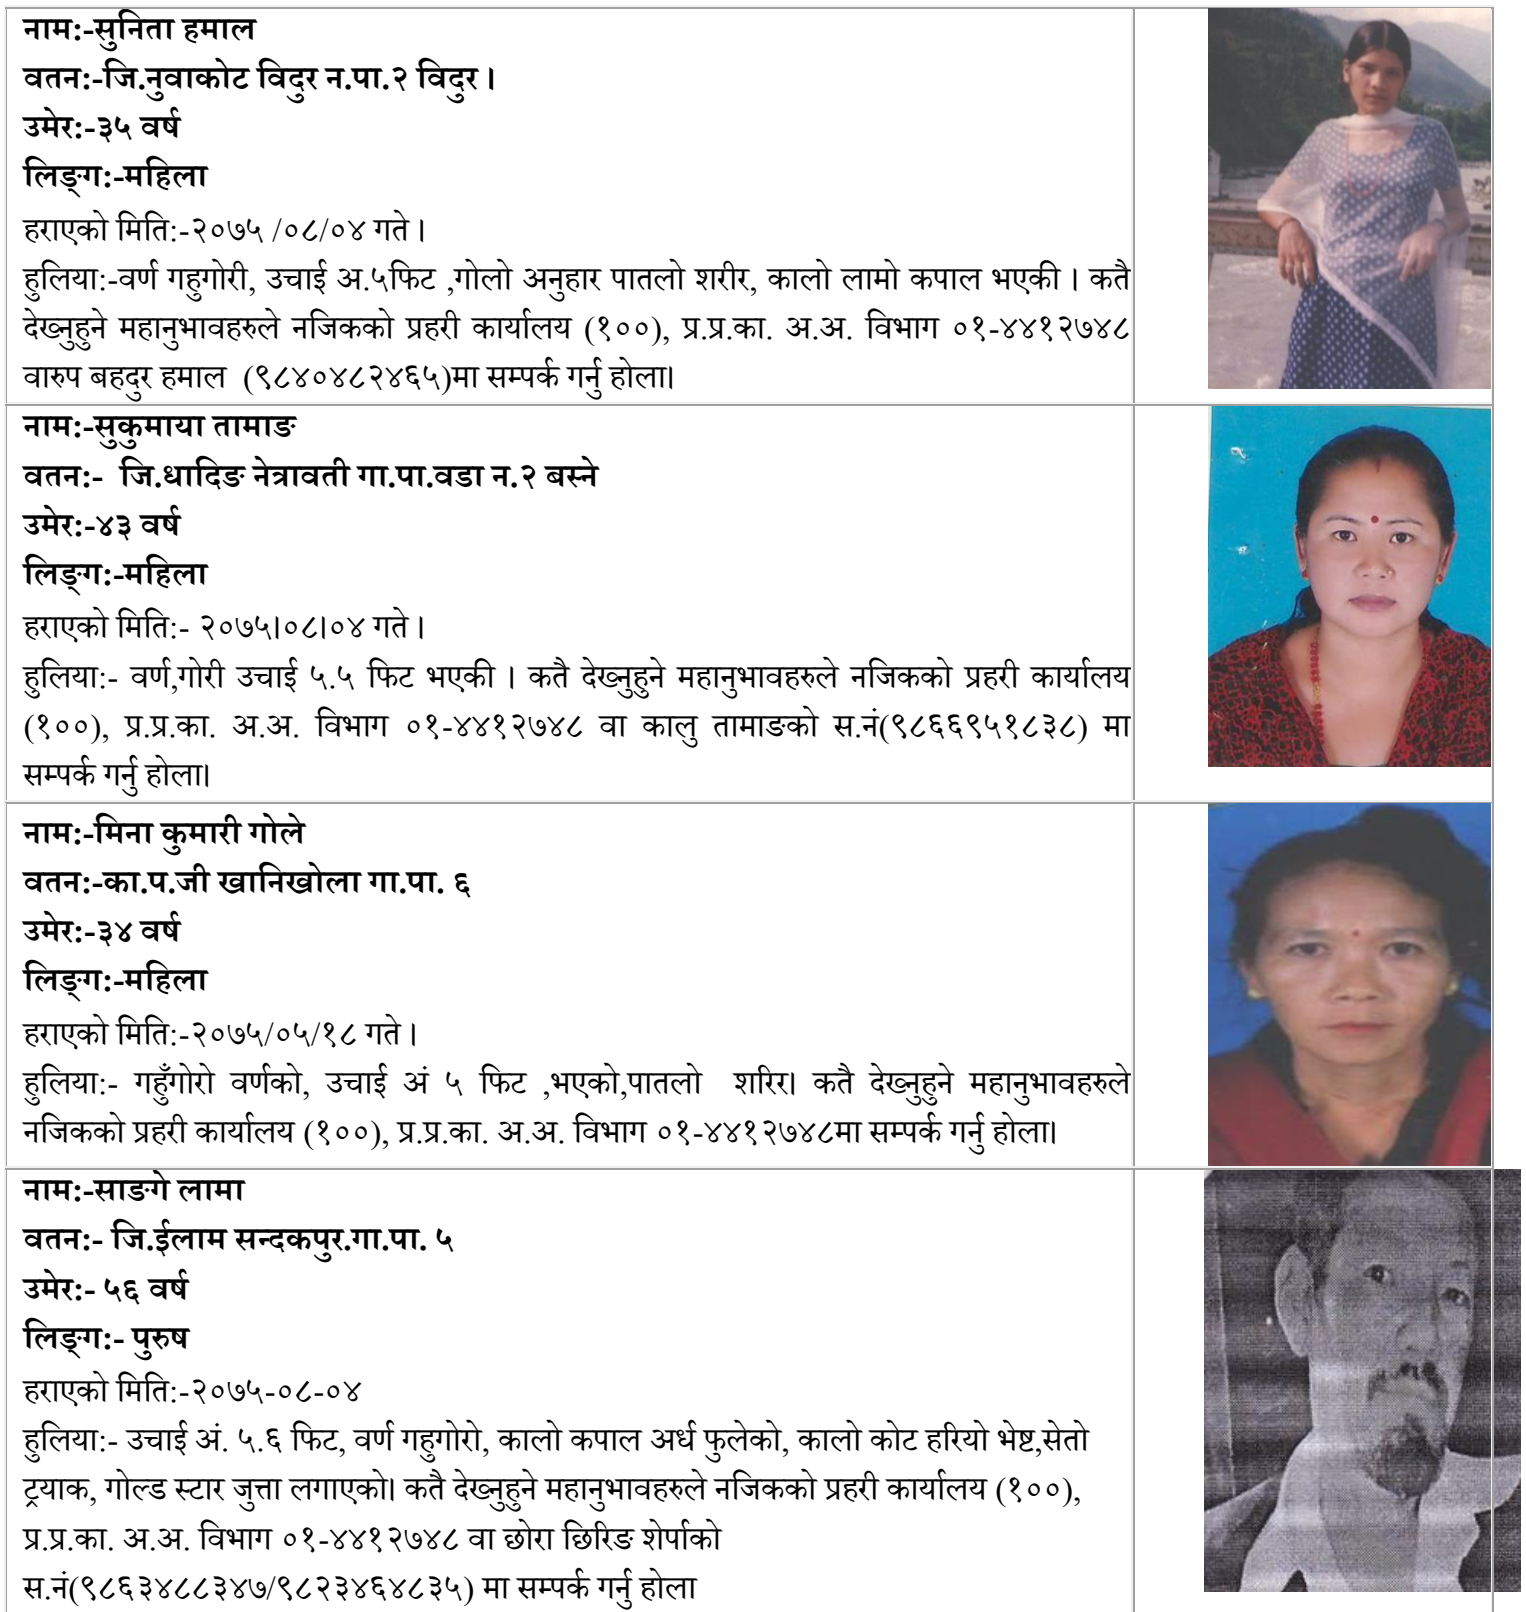 नाम:-सुनिता हमाल
वतन:-जि.नुवाकोट विदुर न.पा.२ विदुर ।
उमेर:-३५ वर्ष
लिङ्ग:-महिला
हराएको मिति:-२०७५ /०८/०४ गते ।
हुलिया:-वर्ण गहुगोरी, उचाई अ.५फिट ,गोलो अनुहार पातलो शरीर, कालो लामो कपाल भएकी । कतै
देख्नुहुने महानुभावहरुले नजिकको प्रहरी कार्यालय (१००), प्र.प्र.का. अ.अ. विभाग ०१-४४१२७४८
वारुप बहदुर हमाल (९८४०४८२४६५)मा सम्पर्क गर्नु होला।
नाम:-सुकुमाया तामाङ
वतन:- जि.धादिङ नेत्रावती गा.पा.वडा न.२ बस्ने
उमेर:-४३ वर्ष
लिङ्ग:-महिला
हराएको मिति:- २०७५।०८।०४ गते ।
हुलिया:- वर्ण,गोरी उचाई ५.५ फिट भएकी । कतै देख्नुहुने महानुभावहरुले नजिकको प्रहरी कार्यालय
(१००), प्र.प्र.का. अ.अ. विभाग ०१-४४१२७४८ वा कालु तामाङको स.नं(९८६६९५१८३८) मा
सम्पर्क गर्नु होला।
नाम:-मिना कुमारी गोले
वतन:-का.प.जी खानिखोला गा.पा. ६
उमेर:-३४ वर्ष
लिङ्ग:-महिला
हराएको मिति:-२०७५/०५/१८ गते ।
हुलिया:- गहुँगोरो वर्णको, उचाई अं ५ फिट ,भएको,पातलो शरिर। कतै देख्नुहुने महानुभावहरुले
नजिकको प्रहरी कार्यालय (१००), प्र.प्र.का. अ.अ. विभाग ०१-४४१२७४८मा सम्पर्क गर्नु होला।
नाम:-साङगे लामा
वतन:- जि.ईलाम सन्दकपुर.गा.पा. ५
उमेर:- ५६ वर्ष
लिङ्ग:- पुरुष
हराएको मिति:-२०७५-०८-०४
हुलिया:- उचाई अं. ५.६ फिट, वर्ण गहुगोरो, कालो कपाल अर्ध फुलेको, कालो कोट हरियो भेष्ट,सेतो
ट्रयाक, गोल्ड स्टार जुत्ता लगाएको। कतै देख्नुहुने महानुभावहरुले नजिकको प्रहरी कार्यालय (१००),
प्र.प्र.का. अ.अ. विभाग ०१-४४१२७४८ वा छोरा छिरिङ शेर्पाको
स.नं(९८६३४८८३४७/९८२३४६४८३५) मा सम्पर्क गर्नु होला